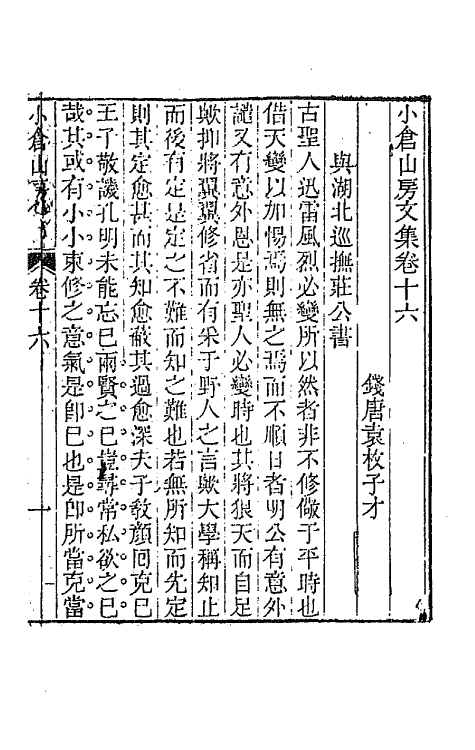 小倉山房文集卷十六
錢唐袁枚子才
與湖北巡撫莊公書
古聖人迅雷風烈必變所以然者非不修儆于平時也
借天變以加惕焉則無之焉而不順日者明公有意外
譴又有意外恩是亦聖人必變時也其將狠天而自足
歟抑將翼翼修省而有采于野人之言歟大學稱知止
而後有定是定之不難而知之難也若無所知而先定
則其定愈甚而其知愈蔽其過愈深夫子敎顏囘克已
王子敬譏孔明未能忘已兩賢之已豈尋常私欲之已
哉其或有小小束修之意氣是卽已也是卽所當克當
小倉山房
卷十六
一